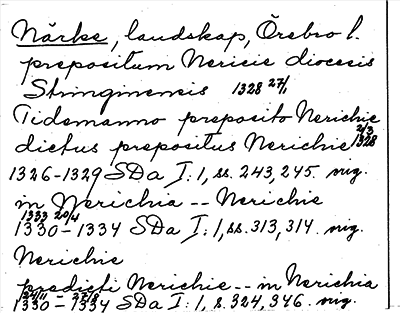 Närke, landskap, Örebro l.
prepositum Nericie diocesis
Stringinensis 1328 27/1
Tidemanno preposito Nerichie
dictus prepositus Nerichie 2/3 1328
1326-1329 SDa I:1, ss. 243, 245. mg.
in Nerichia -- Nerichie
1333 20/4
1330-1334 SDa I:1, ss. 313, 314. mg.
Nerichie
predicti Nerichie -- in Nerichia
1330-1334 SDa I:1, s. 324, 346. mg.